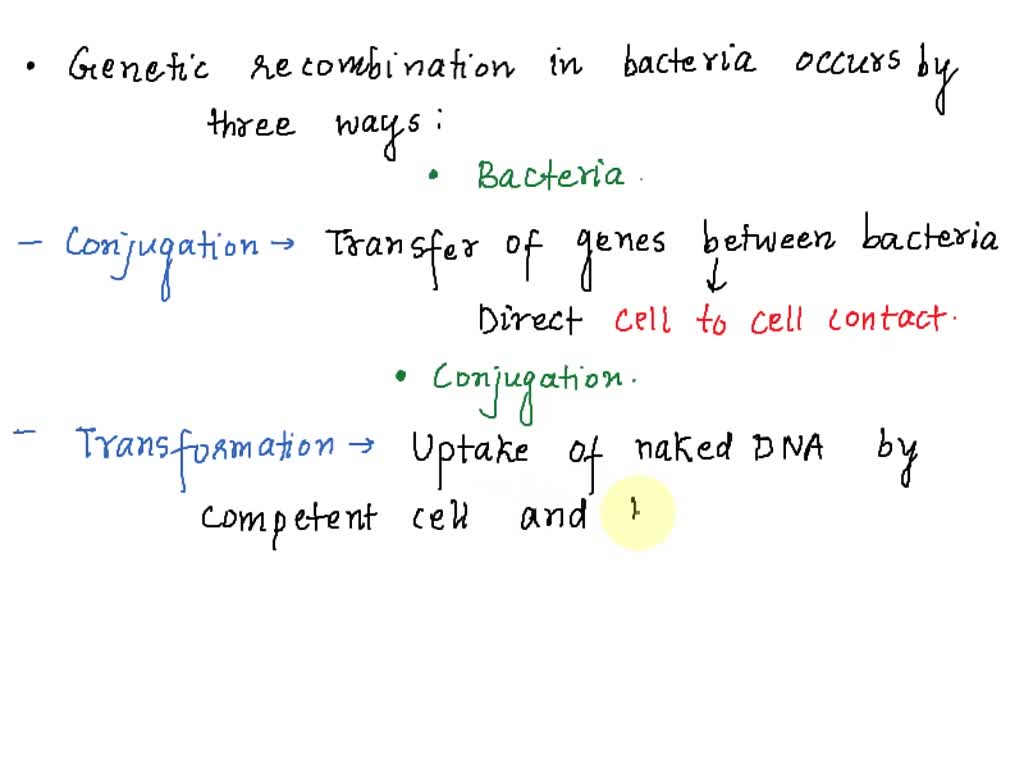 • Genetic recombination in bacteria occurs by
three ways:
• Bacteria.
- Conjugation → Transfer of genes between bacteria
↓
Direct cell to cell contact.
• Conjugation.
- Transformation → Uptake of naked DNA by
competent cell and